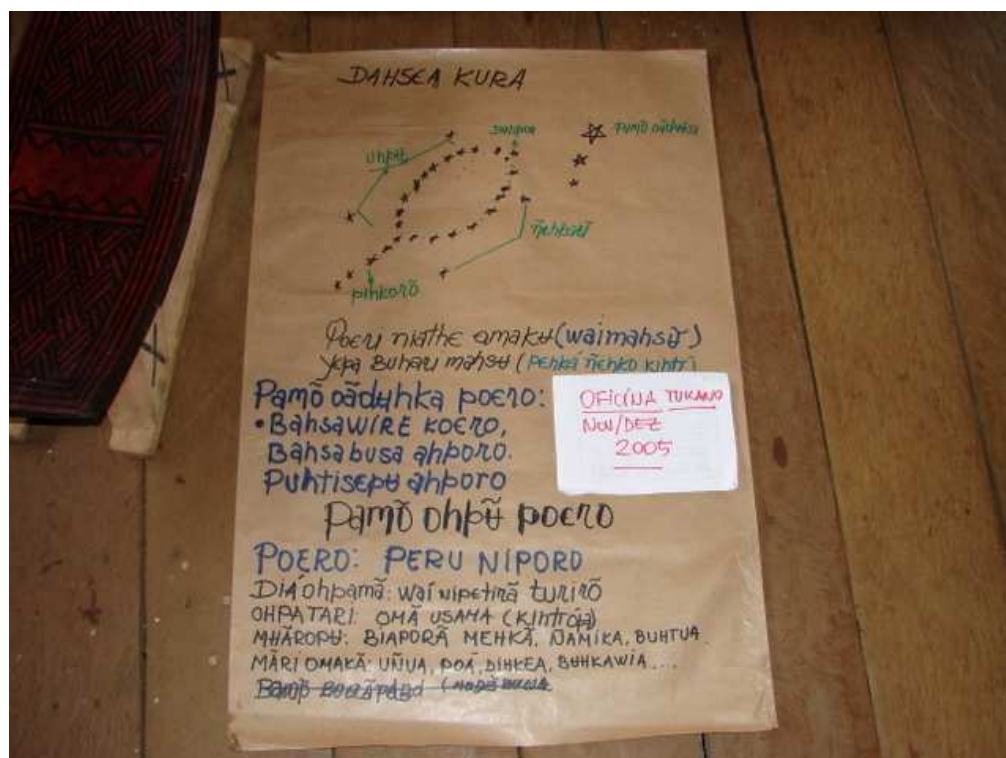 DAHSEA KURA
uhpʉ
Pamõ oãduhka
ñehkatʉ
pihkorõ
Poeri niathe omakʉ (waimahsʉ̃)
Yepa Buhari mahsʉ (pehká ñehko kihti)
Pamõ oãdʉhka poero:
• Bahsawire koero,
Bahsabusa ahporo.
Puhtisepʉ ahporo
OFICINA TUKANO
NOV/DEZ
2005
Pamõ ohpʉ̃ poero
POERO: PERU NIPORO
Dia ohpamã: wai nipetirã turirõ
OHPATARI: OMÃ USAMA (kihtroja)
MHÃROPʉ: BIAPORÃ MEHKÃ, ÑAMIKA, BUHTUA
MÃRI OMAKÃ: UÑUA, POÃ, DIHKEA, BʉHKAWIA....